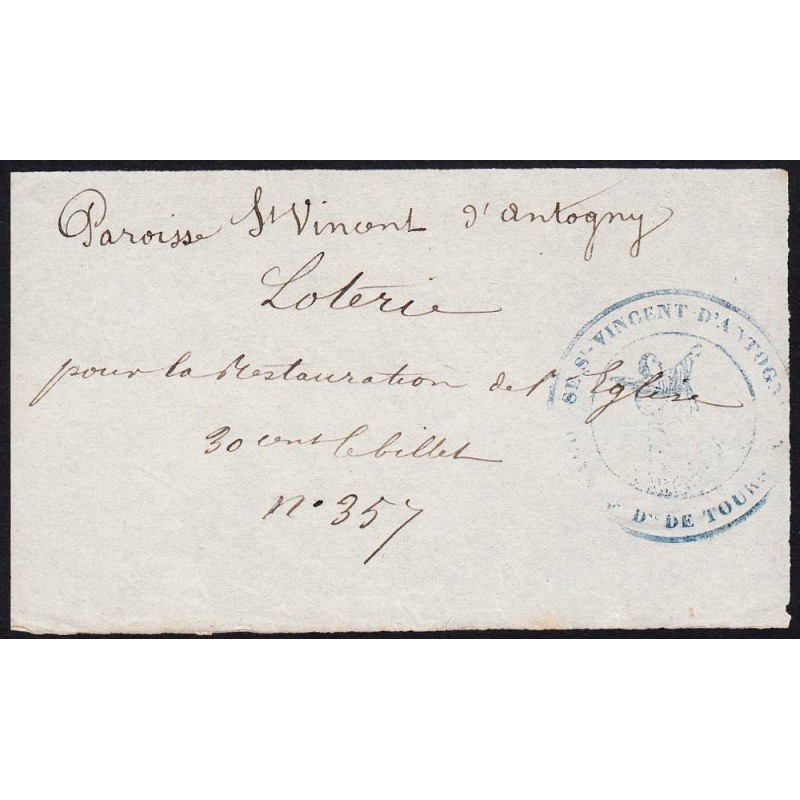 Paroisse St Vincent d'Antogny
Loterie
pour la Restauration de l'Eglise
30 cent le billet
n° 357
ST VINCENT D'ANTOG
Dse DE TOURS